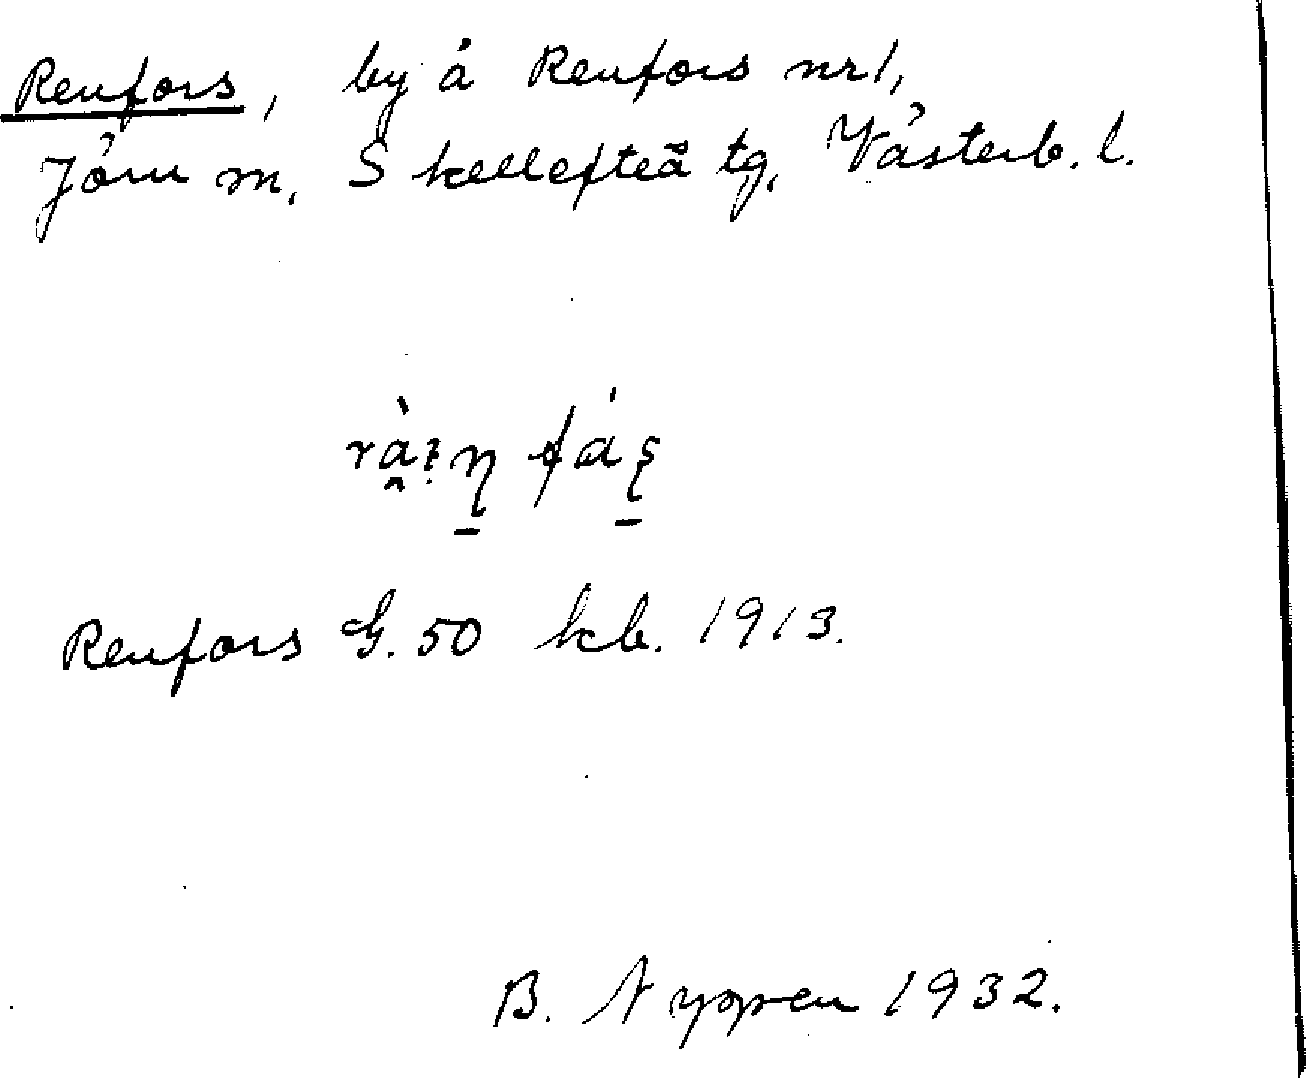 Renfors, by å Renfors nr 1,
Jörn sn, Skellefteå tg, Västerb. l.
Renfors G. 50 kb. 1913.
B. 1932.